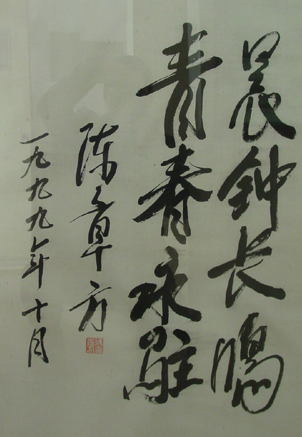 晨钟长鳴
青春永駐
陈章方
一九九九年十月